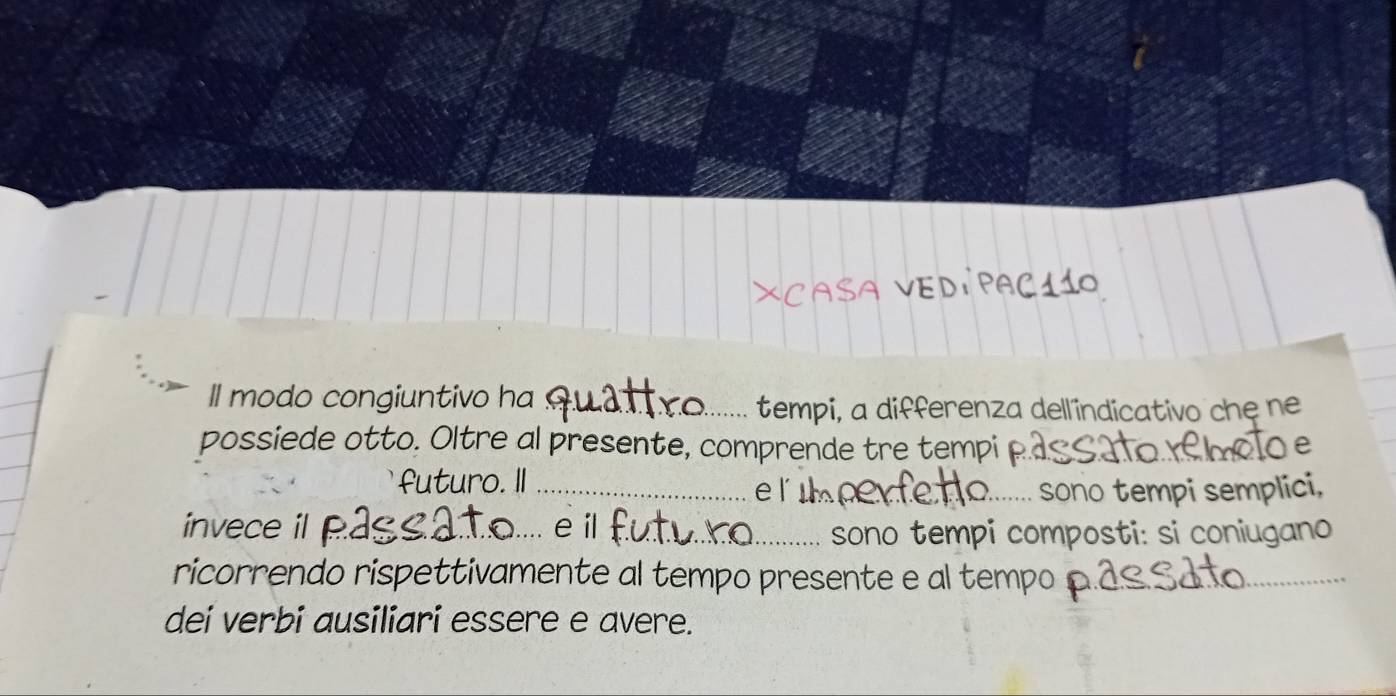 XCASA VEDI PAG 110.
Il modo congiuntivo ha quattro...... tempi, a differenza dell'indicativo che ne
possiede otto. Oltre al presente, comprende tre tempi passato remoto e
futuro. Il ........................ e l'imperfetto...... sono tempi semplici,
invece il passato.... e il futuro.......... sono tempi composti: si coniugano
ricorrendo rispettivamente al tempo presente e al tempo passato............
dei verbi ausiliari essere e avere.